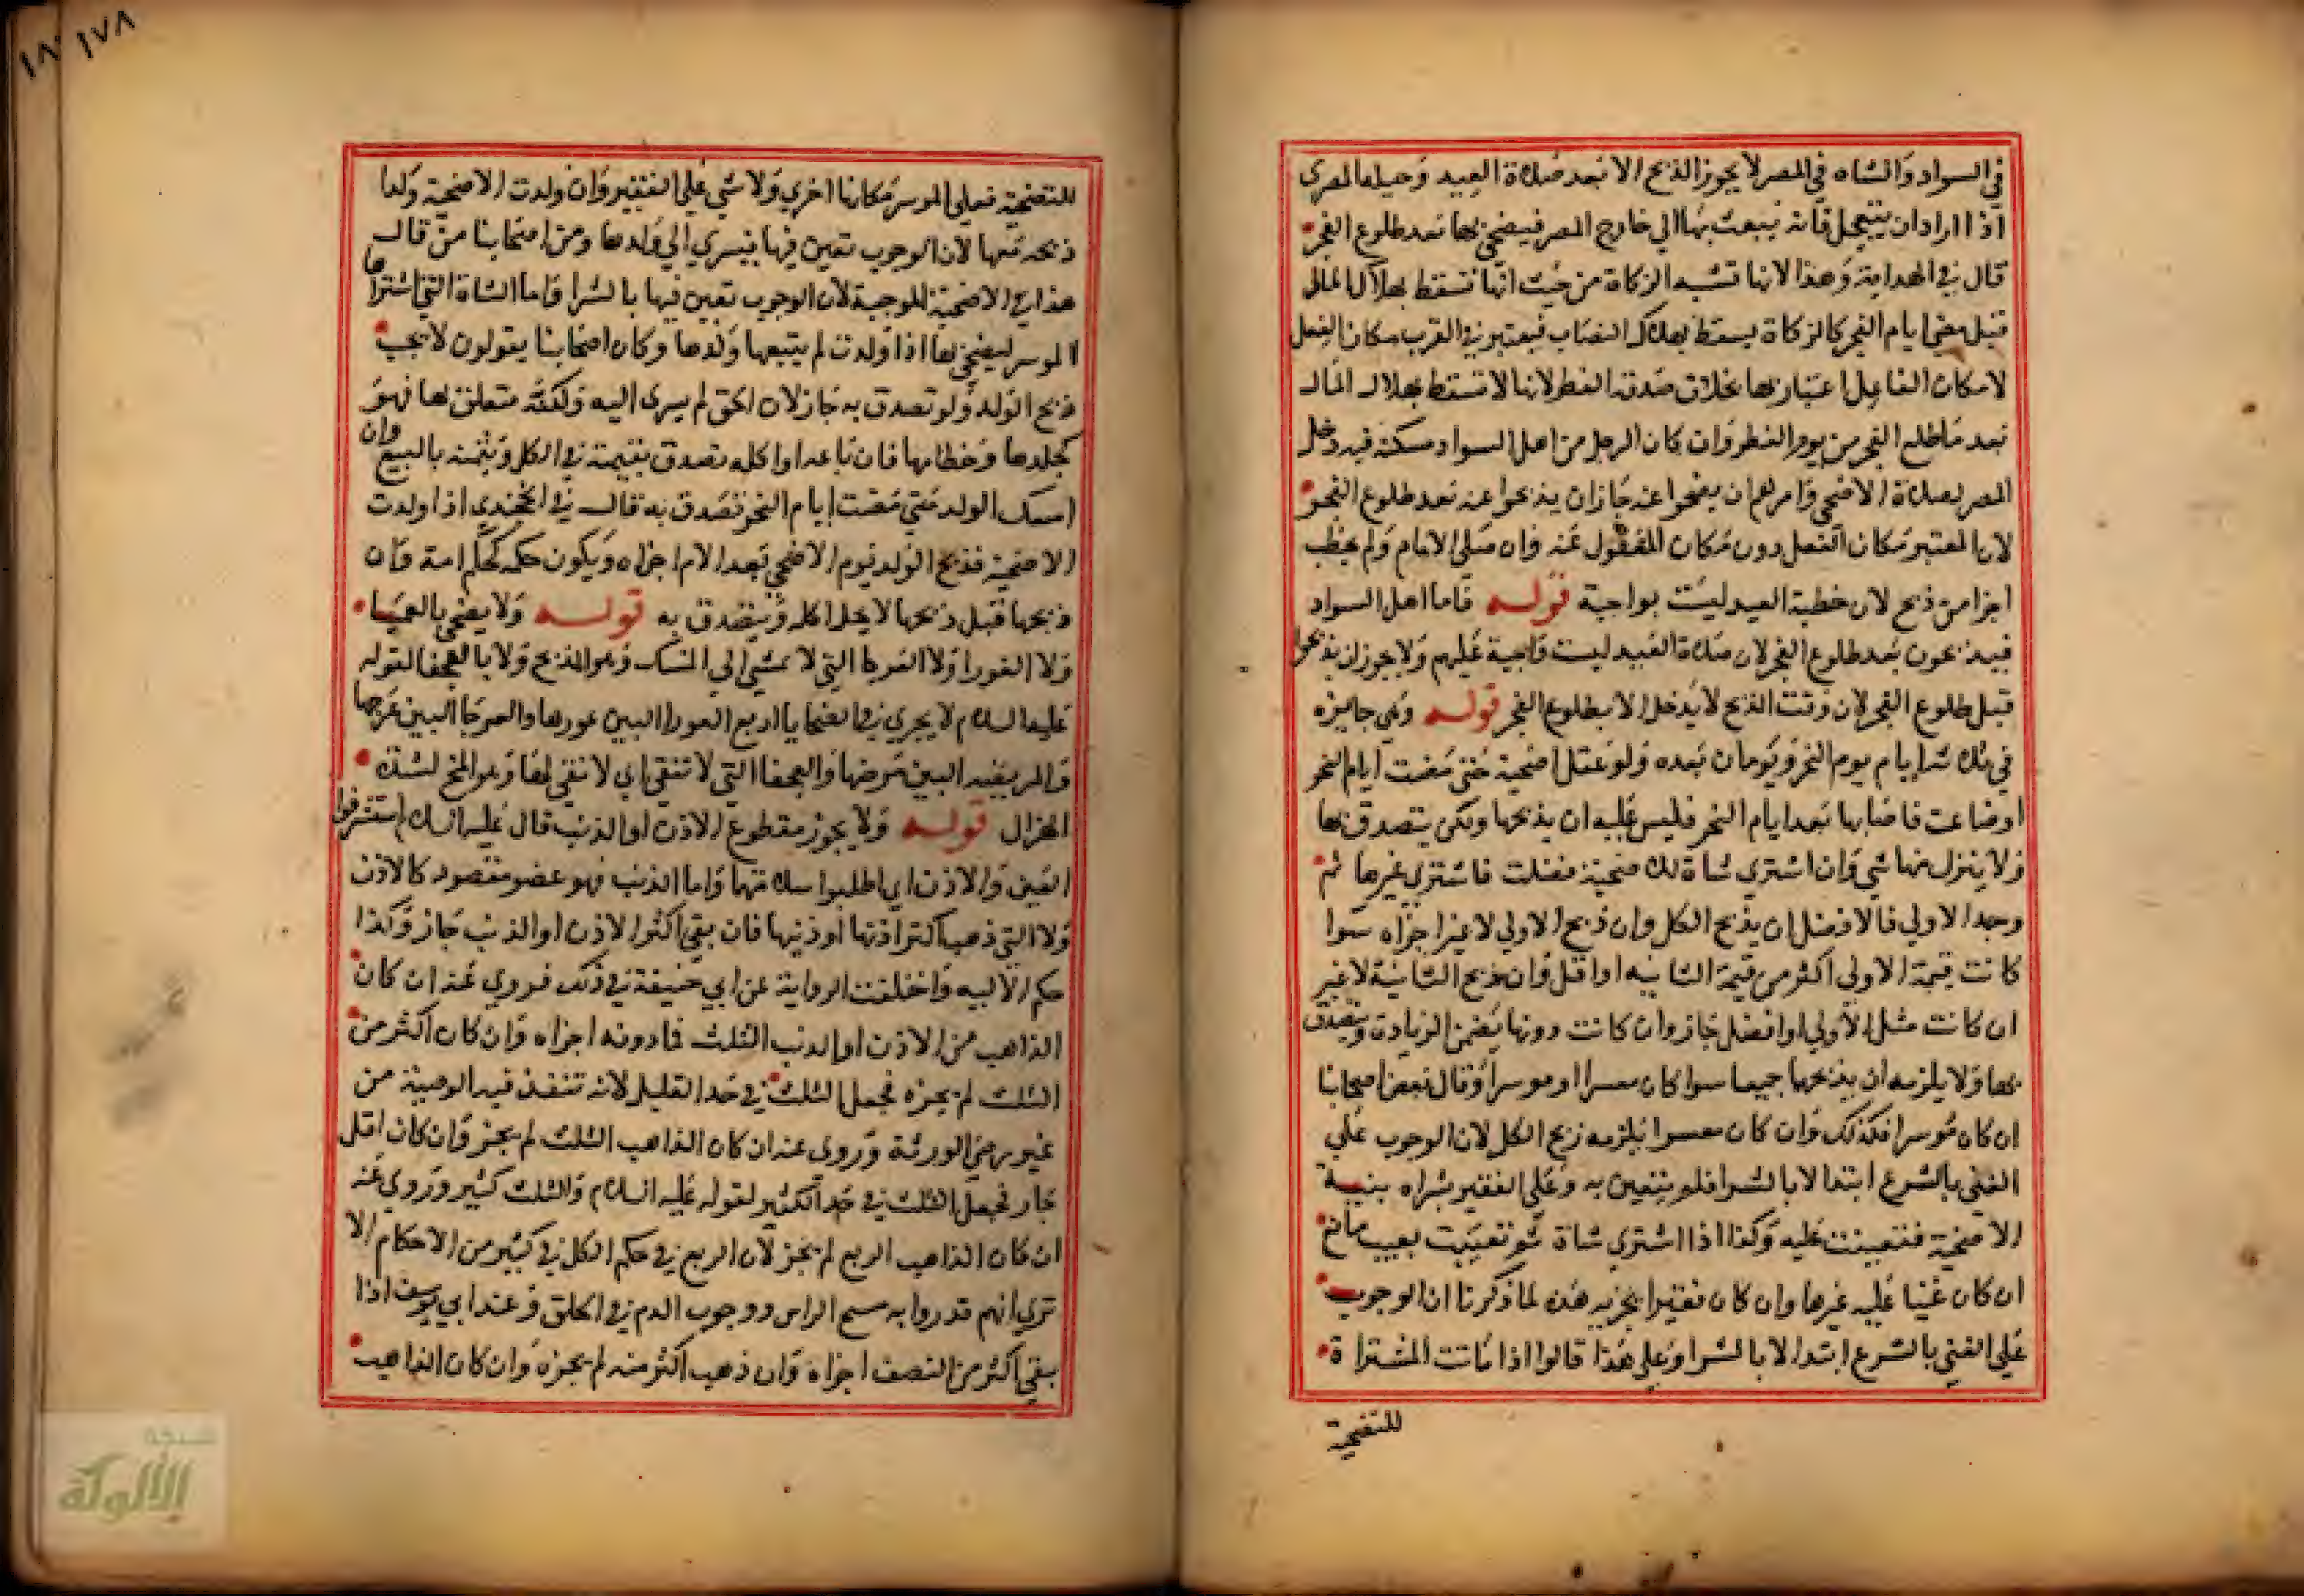 في السواد والشاه في المصر لا يجوز الذبح الا بعد صلاة العيد وحيلة المصري
اذا اراد ان يتعجل فانه يبعث بها الي خارج المصر فيضحي بها بعد طلوع الفجر
قال في الهداية وهذا لانها تشبه الزكاة من حيث انها تسقط بهلاك المال
قبل مضي ايام النحر كالزكاة يسقط بهلاك النصاب فيعتبر في القرب مكان الفعل
لامكان الفاعل اعتبار بها بخلاف صدقة الفطر لانها لا تسقط بهلاك المال
بعد ما طلع الفجر من يوم الفطر وان كان الرجل من اهل السواد مسكنه فيه دخل
المصر لصلاة الاضحي وامر اهله ان يضحوا عنه جاز ان يذبحوا عنه بعد طلوع الفجر
لان المعتبر مكان الفعل دون مكان المفعول عنه وان صلي الامام ولم يخطب
اجزا من ذبح لان خطبة العيد ليست بواجبة قوله فاما اهل السواد
فيذبحون بعد طلوع الفجر لان صلاة العيد ليست واجبة عليهم ولا يجوز ان يذبحوا
قبل طلوع الفجر لان وقت الذبح لا يدخل الا بطلوع الفجر قوله وهي جايزه
في ثلاثة ايام يوم النحر ويومان بعده ولو عقل اضحية حتي مضت ايام النحر
او ضاعت فاصابها بعد ايام النحر فليس عليه ان يذبحها ولكن يتصدق بها
ولا ينزل منها شي وان اشتري شاة للاضحية فضلت فاشتري غيرها ثم
وجد الاولي فالافضل ان يذبح الكل وان ذبح الاولي لا غير اجزاه سوا
كانت قيمة الاولي اكثر من قيمة الثانيه او اقل وان ذبح الثانية لا غير
ان كانت مثل الاولي او افضل جاز وان كانت دونها يضمن الزيادة ويتصدق
بها ولا يلزمه ان يذبحها جميعا سوا كان معسرا او موسرا وقال بعض اصحابنا
ان كان موسرا فكذلك وان كان معسرا يلزمه ذبح الكل لان الوجوب علي
الغني بالشرع ابتدا لا بالشرا فلم يتعين به وعلي الفقير بشراه بنية
الاضحية فتعينت عليه وكذا اذا اشتري شاة ثم تعيبت بعيب مانع
ان كان غنيا عليه غيرها وان كان فقيرا يجزيه هذه لما ذكرنا ان الوجوب
علي الغني بالشرع ابتدا لا بالشرا وعلي هذا قالوا اذا ماتت المشتراة
للتضحية
١٧٨
للتضحية فعلي الموسر مكانها اخري ولا شي علي الفقير وان ولدت الاضحية ولدا
ذبحه معها لان الوجوب تعين فيها فيسري الي ولدها ومن اصحابنا من قال
هذا في الاضحية الموجبة لان الوجوب تعين فيها بالشرا فاما الشاة التي اشتراها
الموسر ليضحي بها اذا ولدت لم يتبعها ولدها وكان اصحابنا يقولون لا يجب
ذبح الولد ولو تصدق به جاز لان الحق لم يسري اليه ولكنه متعلق بها فهو
كجلدها وخطامها فان باعه او اكله تصدق بقيمته في الاكل وبثمنه بالبيع وان
امسك الولد حتي مضت ايام النحر تصدق به قال في الخجندي اذا ولدت
الاضحية فذبح الولد يوم الاضحي بعد الام اجزاه ويكون حكمه كحكم امه وان
ذبحها قبل ذبحها لا يحل اكله ويتصدق به قوله ولا يضحي بالعميا
ولا العورا ولا العرجا التي لا تمشي الي المنسك وهو المذبح ولا بالعجفا لقوله
عليه السلام لا يجزي في الضحايا اربع العورا البين عورها والعرجا البين عرجها
والمريضه البين مرضها والعجفا التي لا تنقي اي لا نقي لها وهو المخ لشدة
الهزال قوله ولا يجوز مقطوع الاذن او الذنب قال عليه السلام استشرفوا
العين والاذن اي اطلبوا سلامتها واما الذنب فهو عضو مقصود كالاذن
ولا التي ذهب اكثر اذنها او ذنبها فان بقي اكثر الاذن او الذنب جاز وكذا
حكم الاليه واختلفت الرواية عن ابي حنيفة في ذلك فروي عنه ان كان
الذاهب من الاذن او الذنب الثلث فما دونه اجزاه وان كان اكثر من
الثلث لم يجزه فجعل الثلث في حد القليل لانه تنفذ فيه الوصية من
غير رضي الورثة وروي عنه ان كان الذاهب الثلث لم يجز وان كان اقل
جاز فجعل الثلث في حد الكثير لقوله عليه السلام والثلث كثير وروي عنه
ان كان الذاهب الربع لم يجز لان الربع في حكم الكل في كثير من الاحكام الا
تري انهم قدروا به مسح الراس ووجوب الدم في الحلق وعند ابي يوسف اذا
بقي اكثر من النصف اجزاه وان ذهب اكثر منه لم يجزه وان كان الذاهب
شبكة
الألوكة